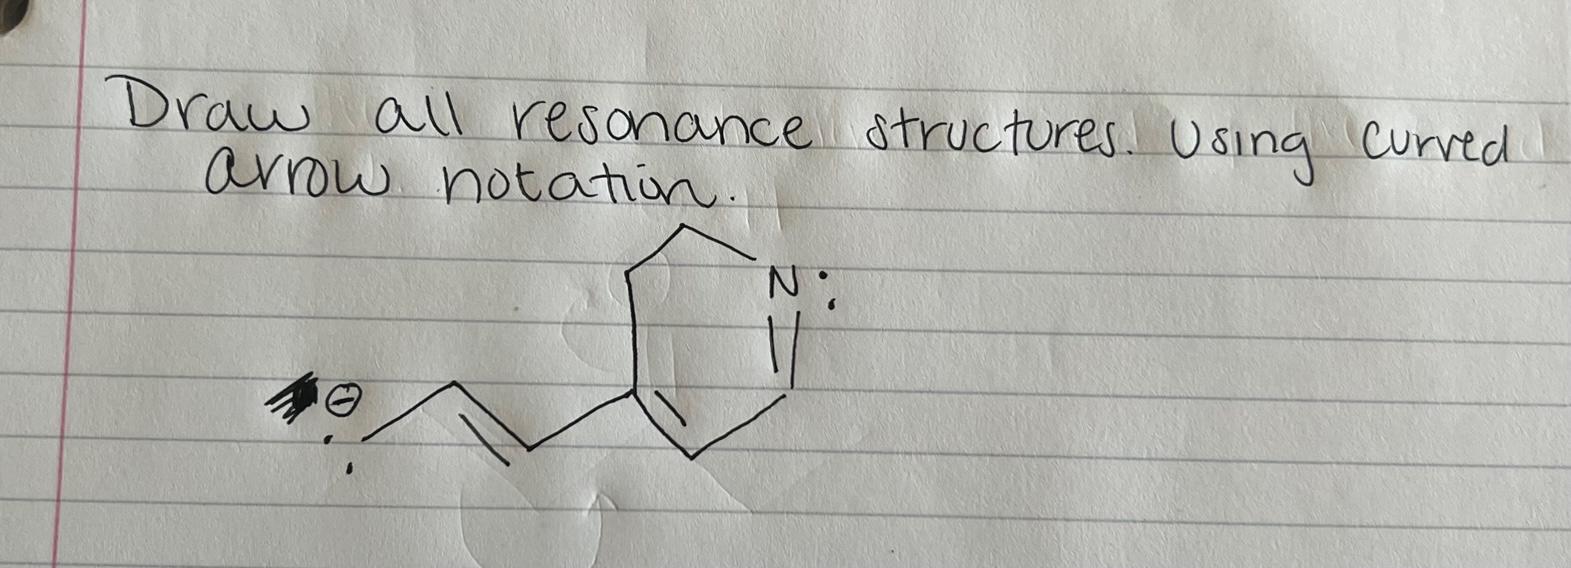 Draw all resonance structures. Using curved
arrow notation.
N:
⊖